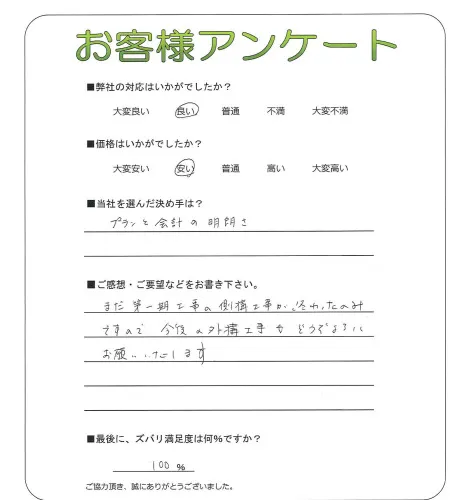 お客様アンケート
■弊社の対応はいかがでしたか？
大変良い 良い 普通 不満 大変不満
■価格はいかがでしたか？
大変安い 安い 普通 高い 大変高い
■当社を選んだ決め手は？
プランと会計の明朗さ
■ご感想・ご要望などをお書き下さい。
まだ第一期工事の側構工事が、終わったのみ
ですので 今後の外構工事もどうぞよろしく
お願いいたします
■最後に、ズバリ満足度は何％ですか？
100 %
ご協力頂き、誠にありがとうございました。